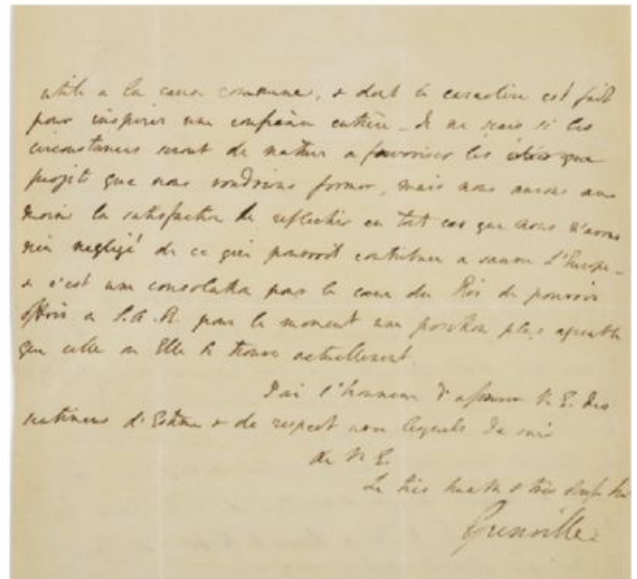 utile a la cause commune, & dont le caractère est fait
pour inspirer une confiance entière – Je ne scais si les
circonstances seront de nature a favoriser les
projets que nous voudrions former, mais nous aurons au
moins la satisfaction de reflechir en tout cas que nous n'avons
rien negligé de ce qui pourroit contribuer a sauver l'Europe –
& c'est une consolation pour le cœur du Roi de pouvoir
offrir a S.A.R. pour le moment une position plus agreable
que celle ou Elle se trouve actuellement.
J'ai l'honneur d'assurer V.E. des
sentimens d'Estime & de respect avec lesquels Je suis
de V.E.
Le très humble & très
Grenville